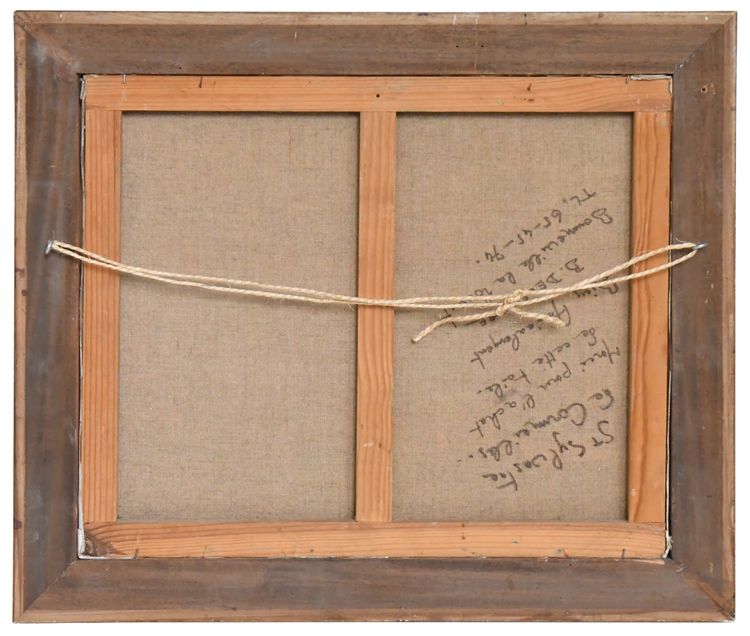 ST Sylvestre
de Cormeilles.
Merci pour l'achat
de cette toile.
Bien Amicalement
B.
Bonneville la
TL. 65-45-74.